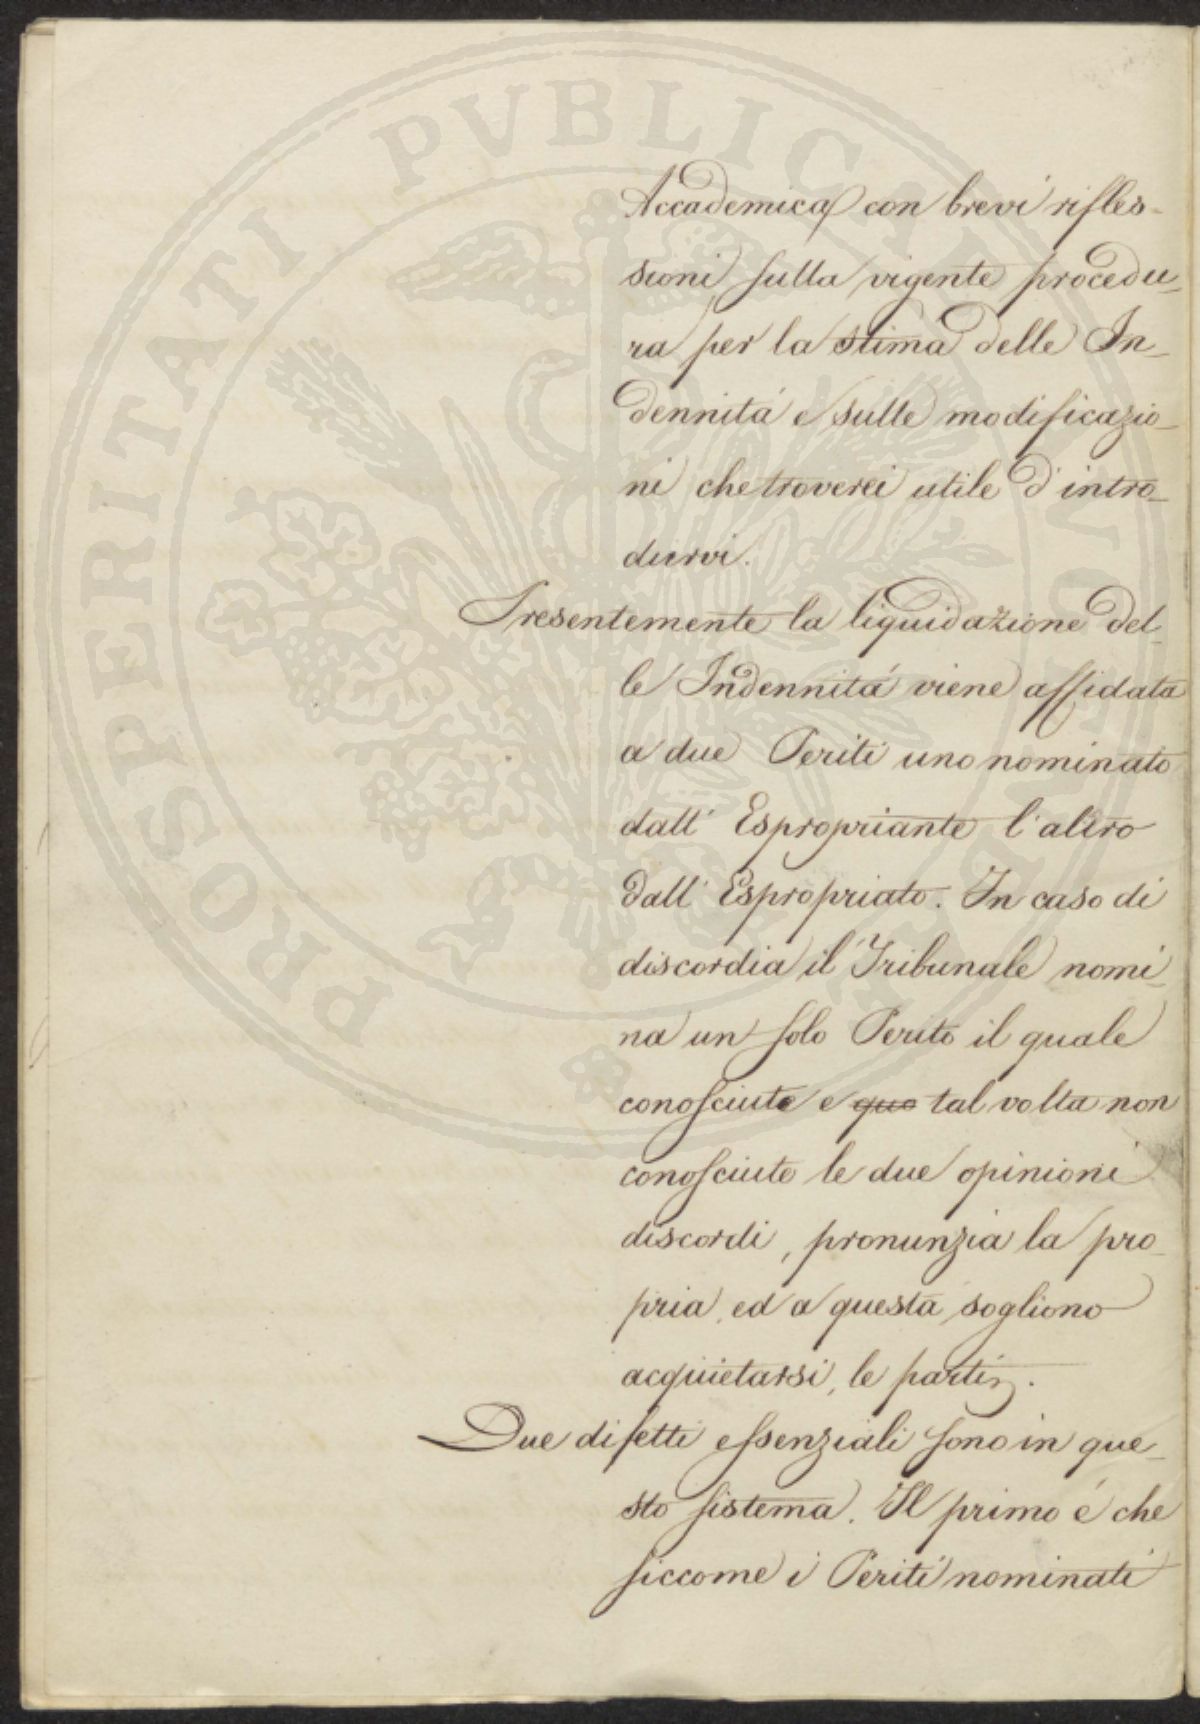 Accademica con brevi rifles-
sioni sulla vigente procedu-
ra per la stima delle In-
dennitá e sulle modificazio-
ni che troverei utile d'intro-
durvi.
Presentemente la liquidazione del-
le Indennitá viene affidata
a due Periti uno nominato
dall' Espropriante l'altro
dall' Espropriato. In caso di
discordia il Tribunale nomi-
na un solo Perito il quale
conosciute e que tal volta non
conosciute le due opinioni
discordi, pronunzia la pro-
pria, ed a questa sogliono
acquietarsi, le parti.
Due difetti essenziali sono in que-
sto sistema. Il primo é che
siccome i Periti nominati
PROSPERITATI PVBLICAE